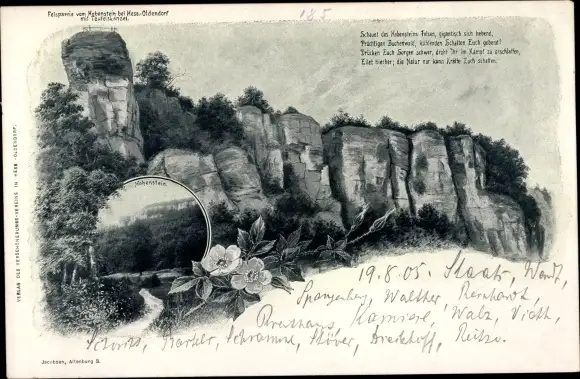 Felspartie vom Hohenstein bei Hess.-Oldendorf
mit Teufelskanzel.
18.5
Schauet des Hohensteins Felsen, gigantisch sich hebend,
Prächtigen Buchenwald, kühlenden Schatten Euch gebend!
Drücken Euch Sorgen schwer, droht Ihr im Kampf zu erschlaffen,
Eilet hierher; die Natur nur kann Kräfte Euch schaffen.
Hohenstein.
VERLAG DES VERSCHÖNERUNGS-VEREINS IN HESS.-OLDENDORF.
19.8.05. Staats, Wendt,
Spangenberg, Walther, Reinhardt,
Breithaupt, Walz, Vieth,
Schramme, Stöver,
Jacobsen, Altenburg S.